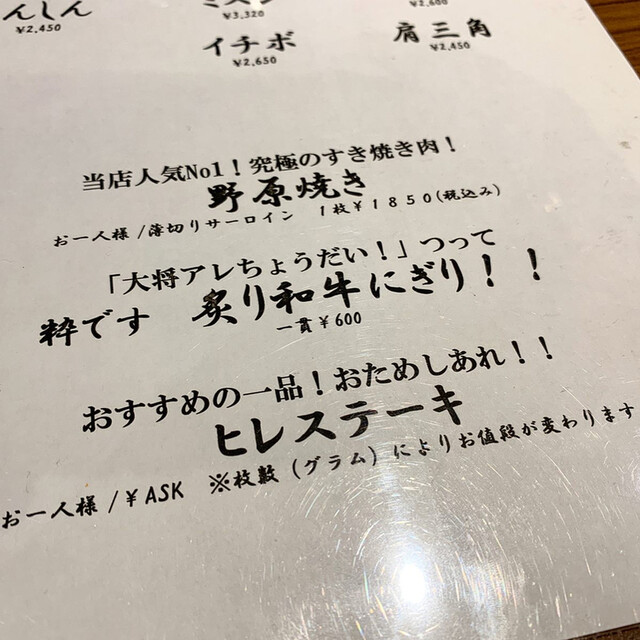 んしん
¥2,450
ミスジ
¥3,320
¥2,600
イチボ
¥2,650
肩三角
¥2,450
当店人気No1！究極のすき焼き肉！
野原焼き
お一人様/薄切りサーロイン 1枚¥1850(税込み)
「大将アレちょうだい！」つって
粋です 炙り和牛にぎり！！
一貫¥600
おすすめの一品！おためしあれ！！
ヒレステーキ
お一人様/¥ASK ※枚数（グラム）によりお値段が変わります